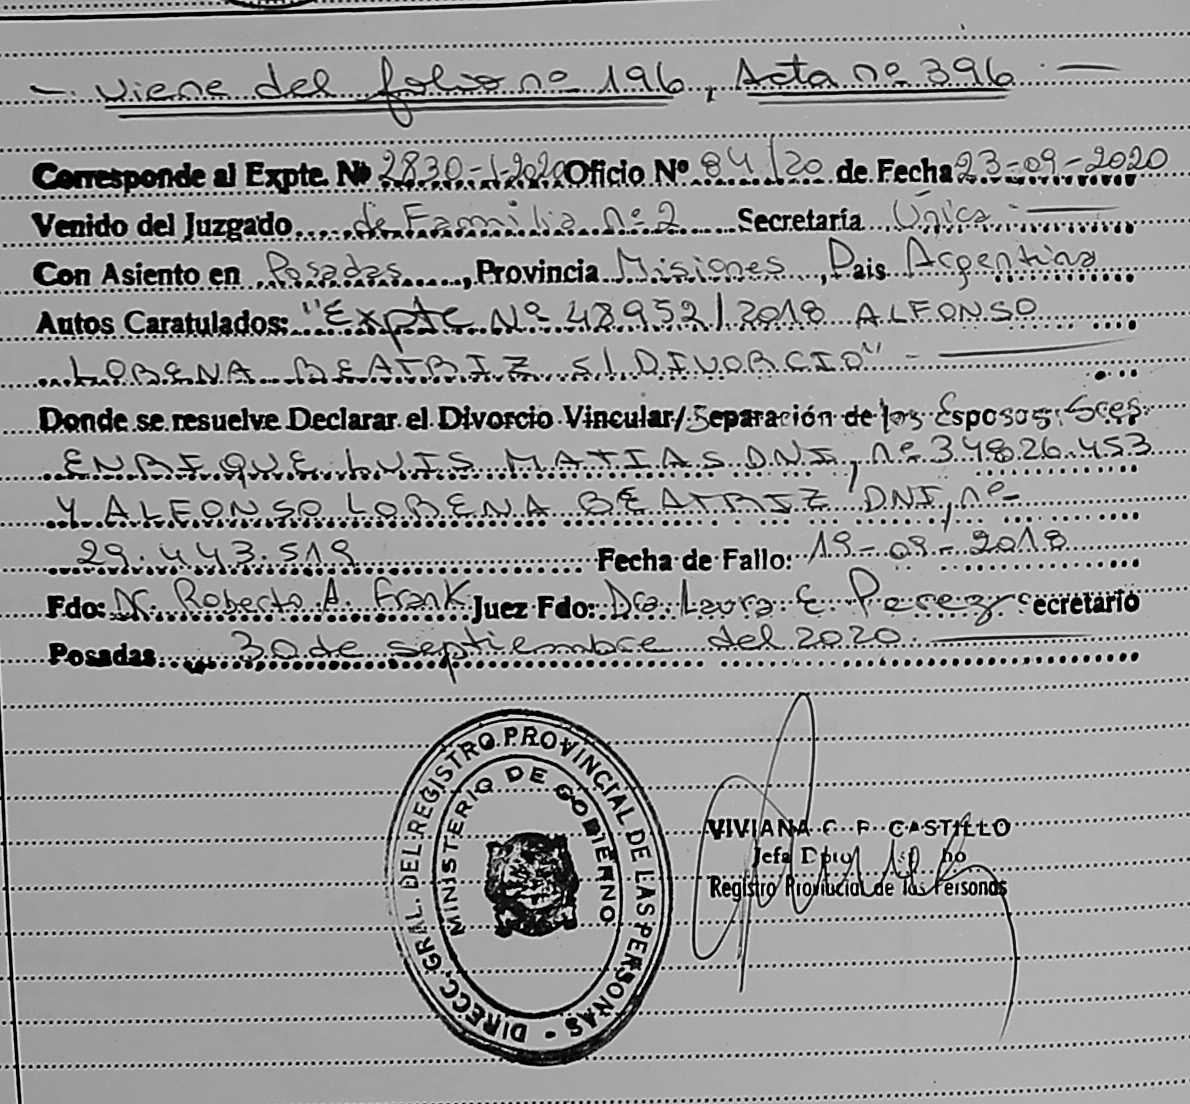 - viene del folio nº 196, Acta nº 396. -
Corresponde al Expte. Nº 2830-1-2020 Oficio Nº 84/20 de Fecha 23-09-2020
Venido del Juzgado de Familia nº 2 Secretaría Única. -
Con Asiento en Posadas, Provincia Misiones, Pais Argentina
Autos Caratulados: "Expte Nº 48952/2018 ALFONSO
LORENA BEATRIZ S/ DIVORCIO" -
Donde se resuelve Declarar el Divorcio Vincular/Separación de los Esposos: Sres.
ENRIQUE LUIS MATIAS DNI, nº 34826.453
Y ALFONSO LORENA BEATRIZ, DNI, nº-
29.443.519 Fecha de Fallo: 19-09-2018
Fdo: Dr. Roberto A. Frank Juez Fdo: Dra. Laura E. Perez Secretario
Posadas, 30 de septiembre del 2020.
DIRECC. GRAL. DEL REGISTRO PROVINCIAL DE LAS PERSONAS -
MINISTERIO DE GOBIERNO
VIVIANA C. F. CASTILLO
Jefa Dpto
Registro Provincial de las Personas